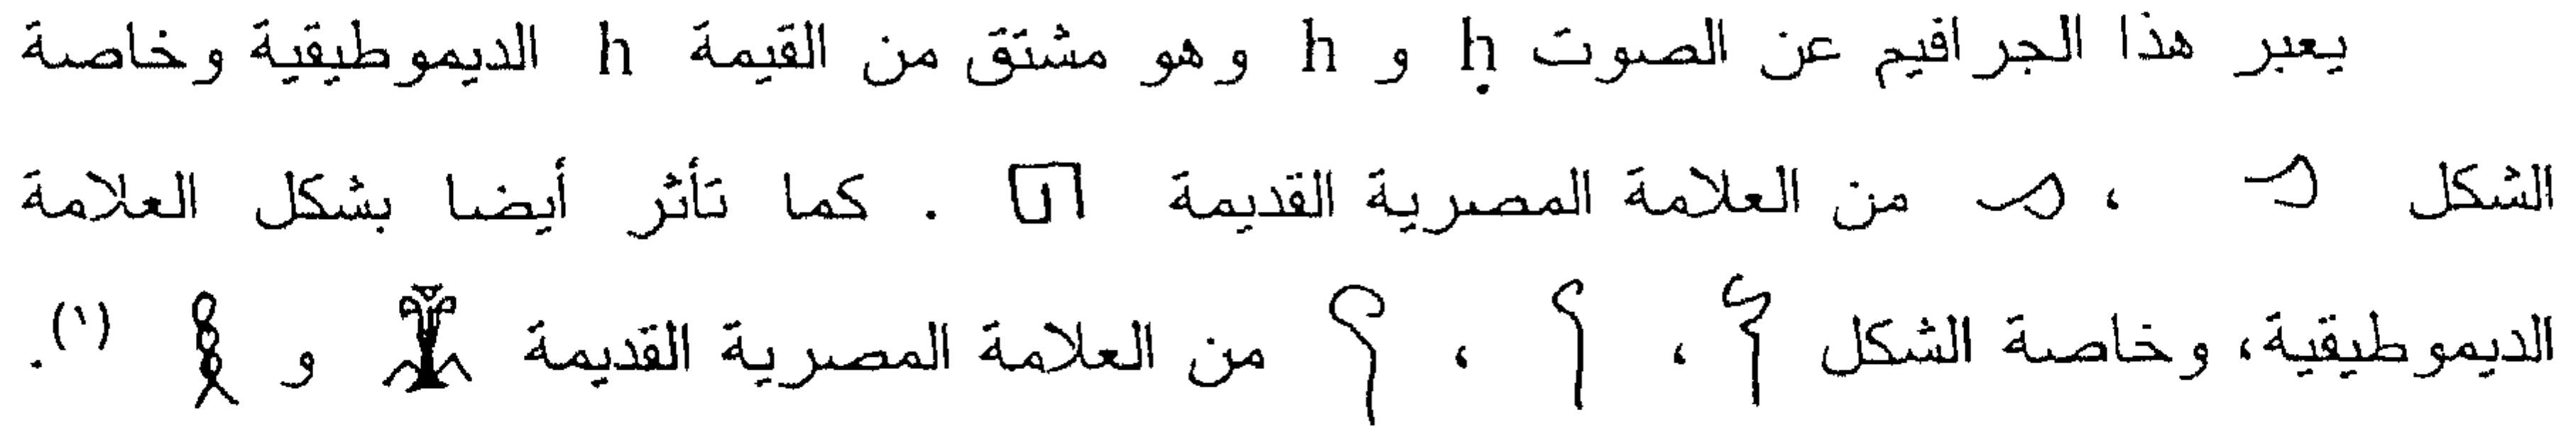 يعبر هذا الجرافيم عن الصوت ḥ و h وهو مشتق من القيمة h الديموطيقية وخاصة
الشكل ، من العلامة المصرية القديمة 𓉔 . كما تأثر أيضا بشكل العلامة
الديموطيقية، وخاصة الشكل ، ، من العلامة المصرية القديمة 𓇉 و 𓎛 (١).